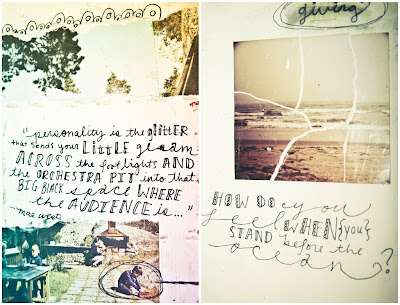 "personality is the glitter
that sends your little gleam
ACROSS the footlights AND
the ORCHESTRA PIT into that
BIG BLACK space WHERE
the AUDIENCE is..."
mae west
giving
HOW DO you
feel WHEN {you}
STAND before the
ocean?